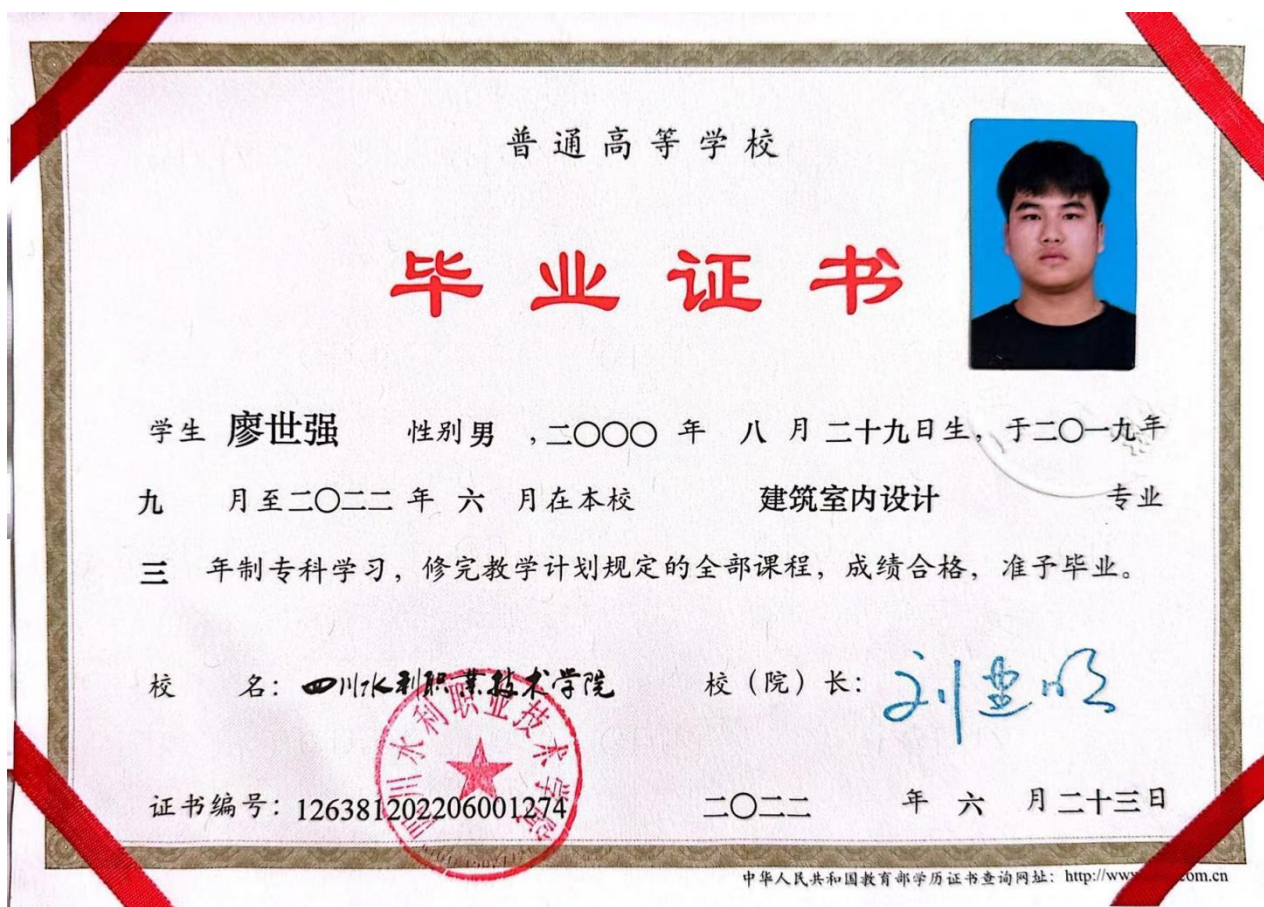 普通高等学校
毕业证书
学生 廖世强 性别 男 ,二〇〇〇 年 八 月 二十九日生, 于二〇一九年
九 月至二〇二二 年 六 月在本校 建筑室内设计 专业
三 年制专科学习, 修完教学计划规定的全部课程, 成绩合格, 准予毕业。
校 名: 四川水利职业技术学院 校(院)长:
四川水利职业技术学院
证书编号: 126381202206001274 二〇二二 年 六 月二十三日
中华人民共和国教育部学历证书查询网址: http://www com.cn